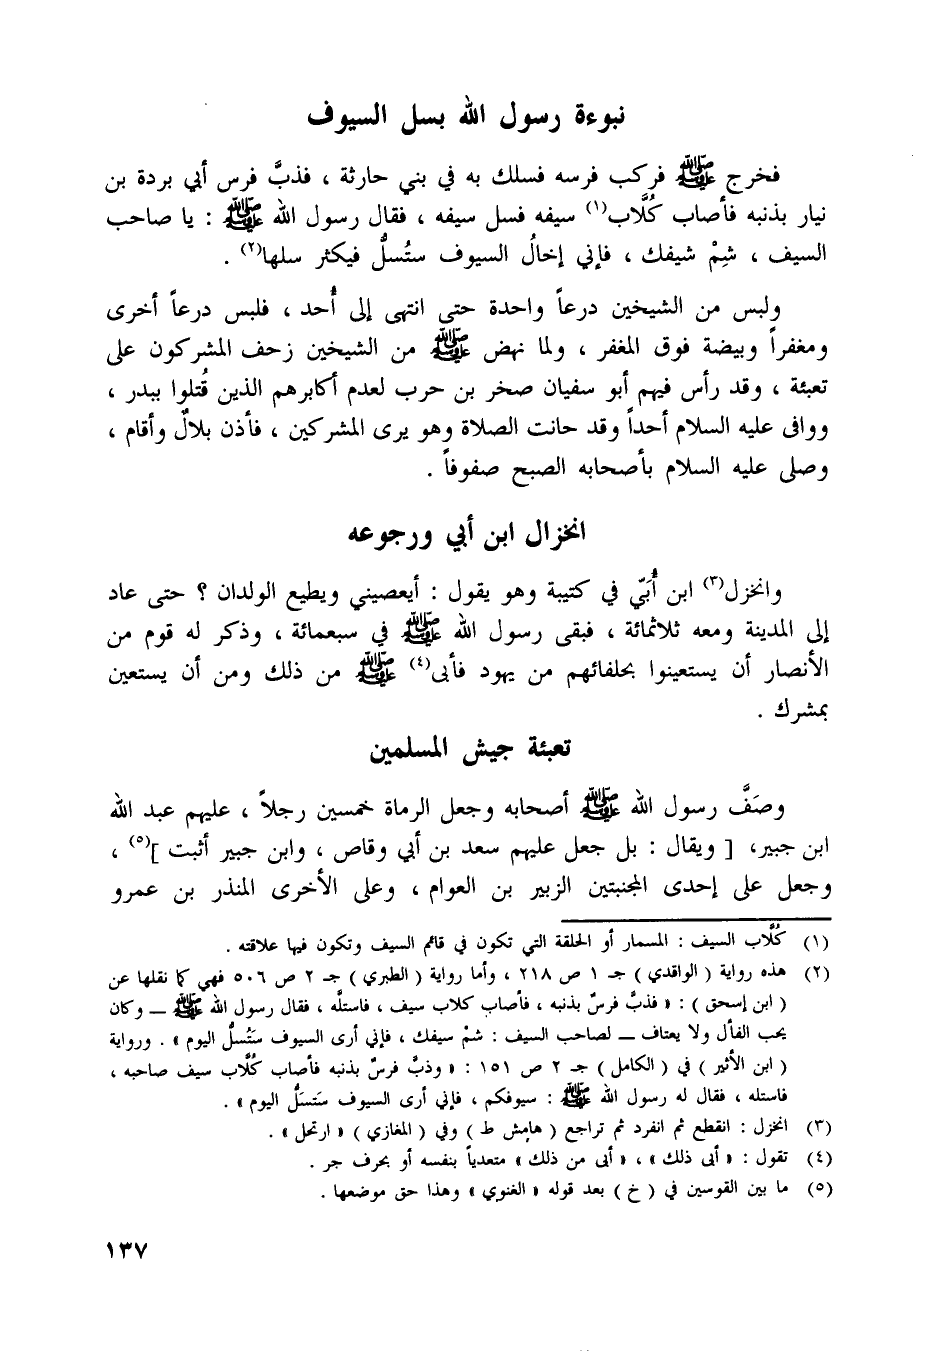 نبوءة رسول الله بسل السيوف
فخرج ﷺ فركب فرسه فسلك به في بني حارثة ، فذبَّ فرس أبي بردة بن
نيار بذنبه فأصاب كُلَّاب(١) سيفه فسل سيفه ، فقال رسول الله ﷺ : يا صاحب
السيف ، شِمْ شيفك ، فإني إخالُ السيوف ستُسلُّ فيكثر سلها(٢) .
ولبس من الشيخين درعاً واحدة حتى انتهى إلى أُحد ، فلبس درعاً أخرى
ومغفراً وبيضة فوق المغفر ، ولما نهض ﷺ من الشيخين زحف المشركون على
تعبئة ، وقد رأس فيهم أبو سفيان صخر بن حرب لعدم أكابرهم الذين قُتلوا ببدر ،
ووافى عليه السلام أحداً وقد حانت الصلاة وهو يرى المشركين ، فأذن بلالٌ وأقام ،
وصلى عليه السلام بأصحابه الصبح صفوفاً .
انخزال ابن أبي ورجوعه
وانخزل(٣) ابن أُبَيّ في كتيبة وهو يقول : أيعصيني ويطيع الولدان ؟ حتى عاد
إلى المدينة ومعه ثلاثمائة ، فبقى رسول الله ﷺ في سبعمائة ، وذكر له قوم من
الأنصار أن يستعينوا بحلفائهم من يهود فأبى(٤) ﷺ من ذلك ومن أن يستعين
بمشرك .
تعبئة جيش المسلمين
وصَفَّ رسول الله ﷺ أصحابه وجعل الرماة خمسين رجلاً ، عليهم عبد الله
ابن جبير، [ ويقال : بل جعل عليهم سعد بن أبي وقاص ، وابن جبير أثبت ](٥) ،
وجعل على إحدى المجنبتين الزبير بن العوام ، وعلى الأخرى المنذر بن عمرو
(١) كُلَّاب السيف : المسمار أو الحلقة التي تكون في قائم السيف وتكون فيها علاقته .
(٢) هذه رواية ( الواقدي ) جـ ١ ص ٢١٨ ، وأما رواية ( الطبري ) جـ ٢ ص ٥٠٦ فهي كما نقلها عن
( ابن إسحق ) : « فذبَّ فرسٌ بذنبه ، فأصاب كلاب سيف ، فاستلَّه ، فقال رسول الله ﷺ — وكان
يحب الفأل ولا يعتاف — لصاحب السيف : شمْ سيفك ، فإني أرى السيوف سَتُسلُّ اليوم » . ورواية
( ابن الأثير ) في ( الكامل ) جـ ٢ ص ١٥١ : « وذبَّ فرسٌ بذنبه فأصاب كُلَّاب سيف صاحبه ،
فاستله ، فقال له رسول الله ﷺ : سيوفكم ، فإني أرى السيوف سَتَسلُّ اليوم » .
(٣) انخزل : انقطع ثم انفرد ثم تراجع ( هامش ط ) وفي ( المغازي ) « ارتحل » .
(٤) تقول : « أبى ذلك » ، « أبى من ذلك » متعدياً بنفسه أو بحرف جر .
(٥) ما بين القوسين في ( خ ) بعد قوله « الغنوي » وهذا حق موضعها .
١٣٧